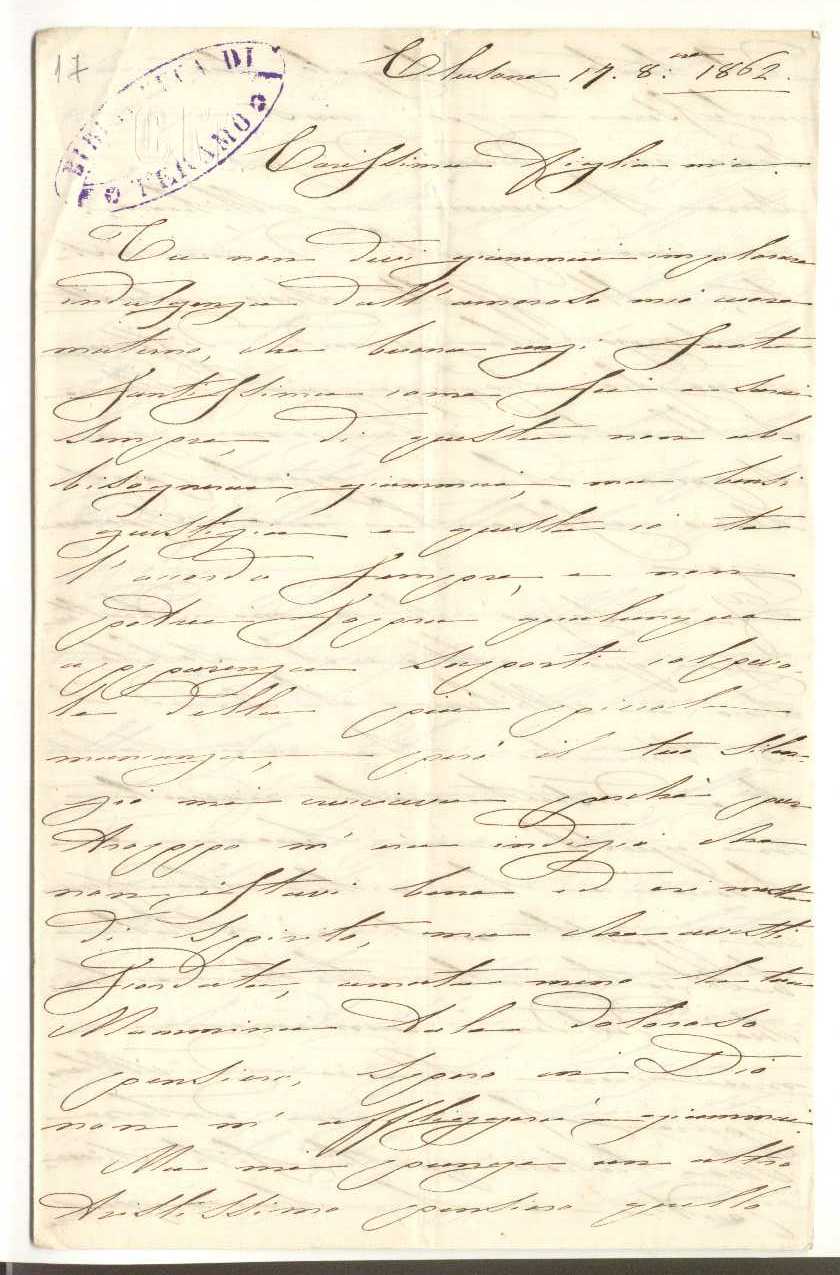 17
BIBLIOTECA DI TERAMO
Clusone 17. 8:bre 1862.
Carissima Figlia mia.
Tu non devi giammai implorare
indulgenza dall'amoroso mio cuore
materno, che buona anzi
Santissima come sei e sarai
sempre, di questa non ab-
bisognerai giammai, ma bensì
giustizia e questa io te
l'accordo sempre, e non
potrei sopra qualunque
apparenza supporti colpevo-
le della più piccola
mancanza, però il tuo silen-
zio mi cruciava perché pur
troppo m'era indizio che
non istavi bene ed eri
di spirito, ma che avesti
scordata, amata meno la tua
Mammina tale doloroso
pensiero, spero in Dio
non m'affliggerà giammai
Ma mi punge un altro
tristissimo pensiero quello